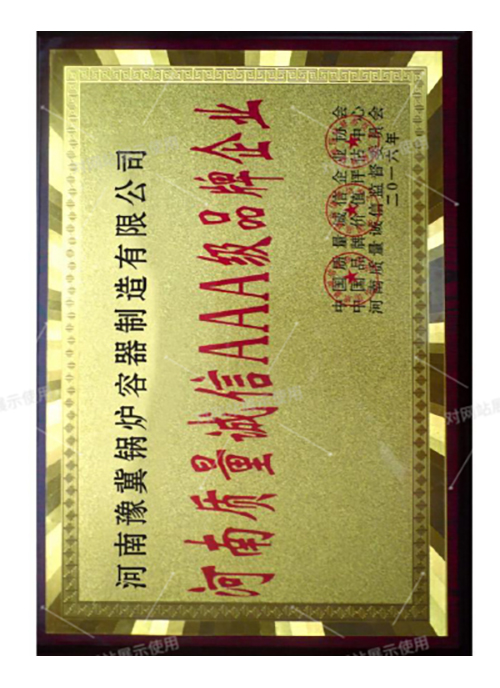 河南豫冀锅炉容器制造有限公司
河南质量诚信AAA级品牌企业
中国质量诚信企业协会
中国品牌价值评估中心
河南质量诚信监督委员会
二〇一六年
展示使用
对网站展
网站展示使用
展示使用